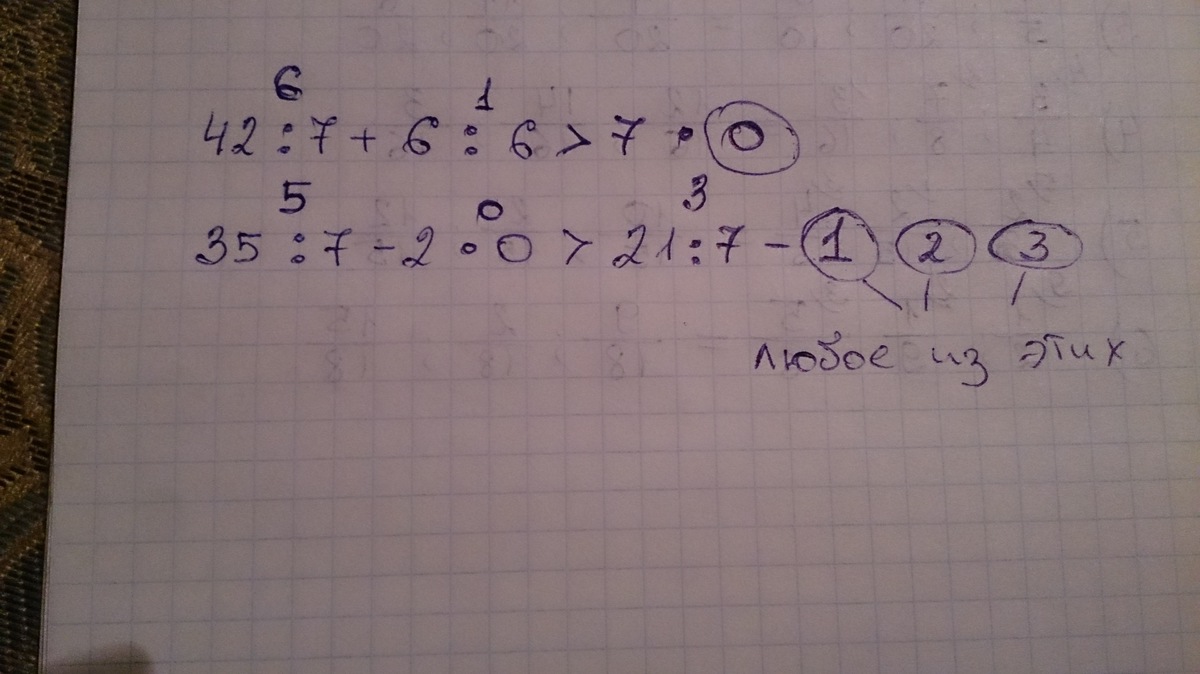 6 1
42 : 7 + 6 : 6 > 7 · 0
5 0 3
35 : 7 - 2 · 0 > 21 : 7 - 1 2 3
любое из этих